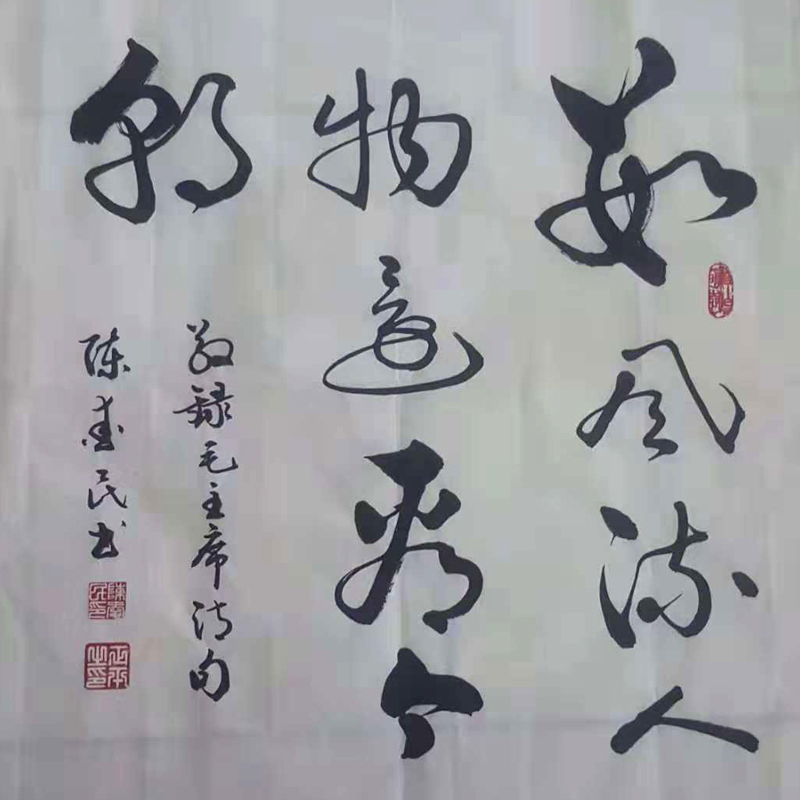 数风流人
物还看今
朝
敬録毛主席诗句
陈民书